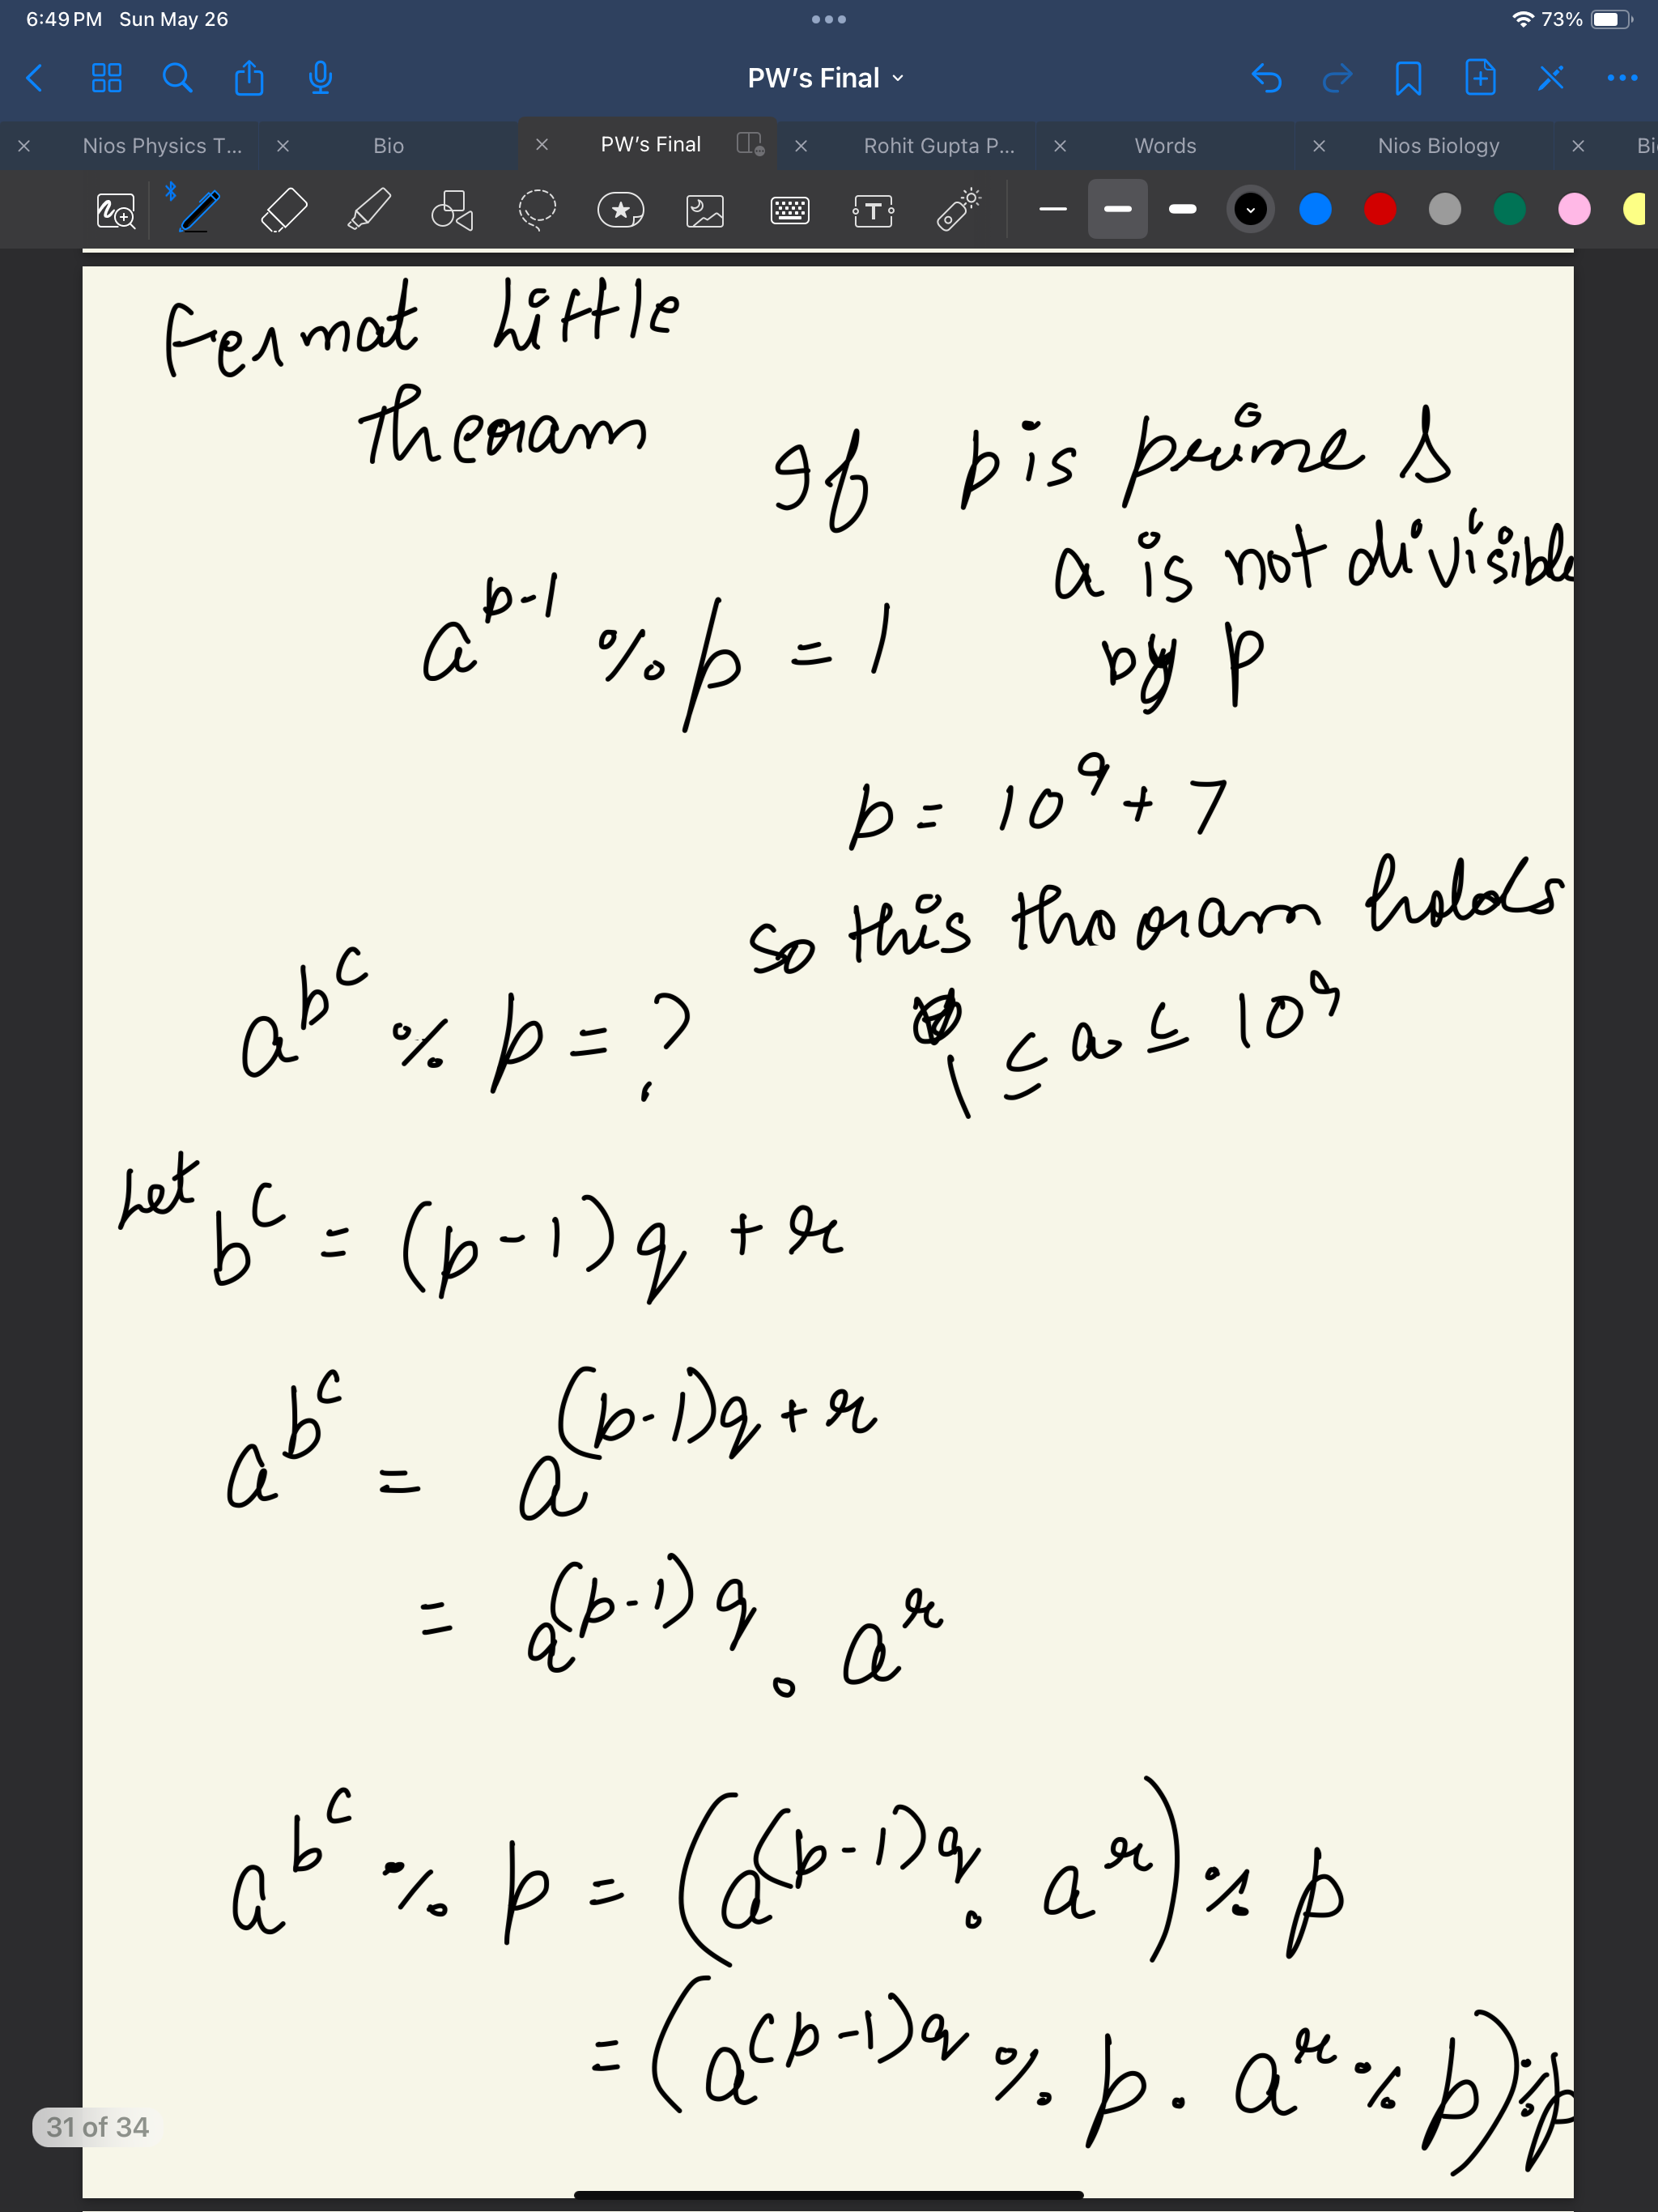 6:49 PM Sun May 26
73%
PW's Final
Nios Physics T... Bio PW's Final Rohit Gupta P... Words Nios Biology Bi
Fermat Little
Theoram
If p is prime &
a is not divisible
by p
a^(p-1) % p = 1
p = 10^9 + 7
so this theoram holds
1 ≤ a ≤ 10^9
a^b^c % p = ?
Let b^c = (p-1) q + r
a^b^c = a^((p-1)q + r)
= a^((p-1)q) . a^r
a^b^c % p = (a^((p-1)q) . a^r) % p
= (a^((p-1)q) % p . a^r % p) % p
31 of 34